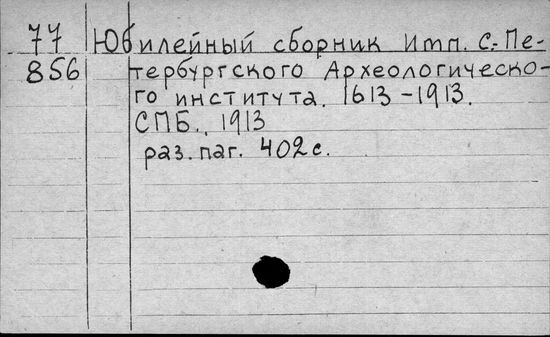 77 Юбилейный сборник Имп. С.-Пе-
856 тербургского Археологическо-
го института. 1613-1913.
СПБ., 1913
раз. паг. 402 с.